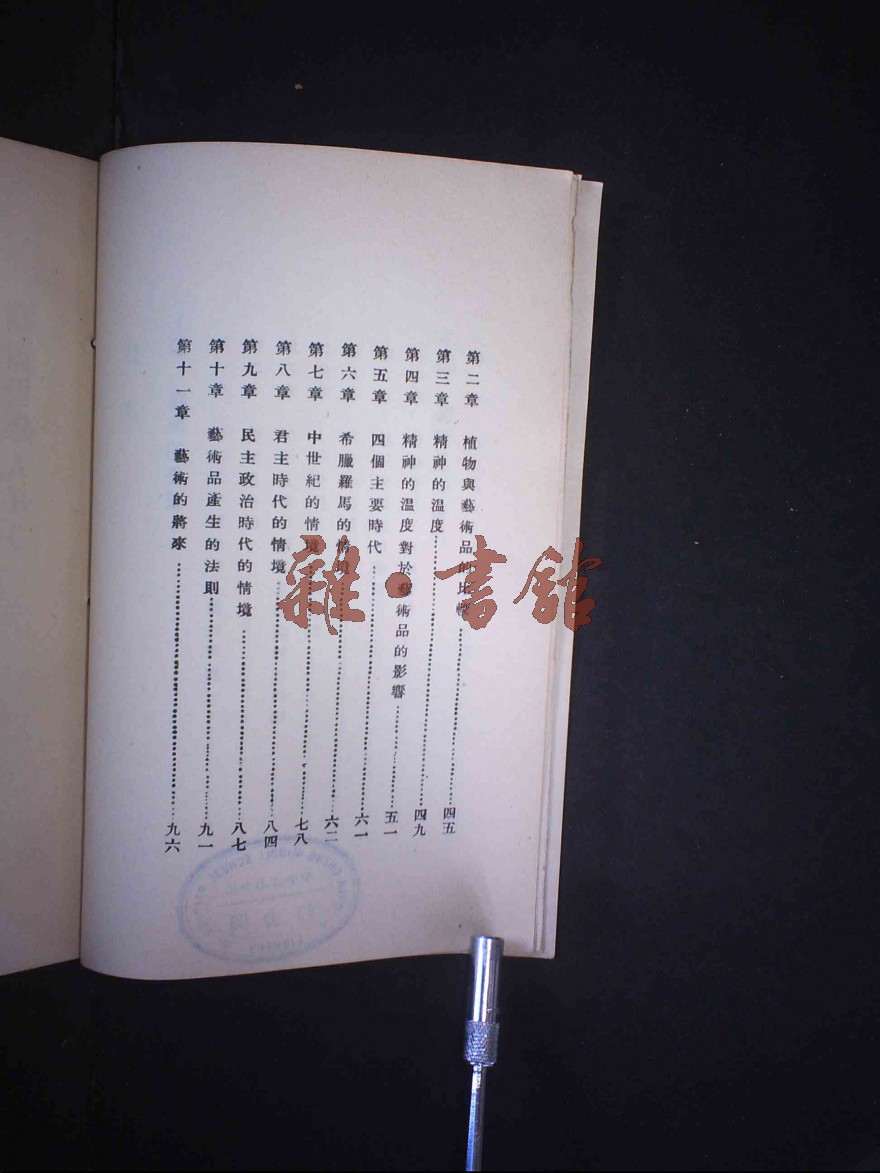 第二章 植物與藝術品的比較…………四五
第三章 精神的溫度…………四九
第四章 精神的溫度對於藝術品的影響…………五一
第五章 四個主要時代…………六一
第六章 希臘羅馬的情境…………六二
第七章 中世紀的情境…………七八
第八章 君主時代的情境…………八四
第九章 民主政治時代的情境…………八七
第十章 藝術品產生的法則…………九一
第十一章 藝術的將來…………九六
雜·書館